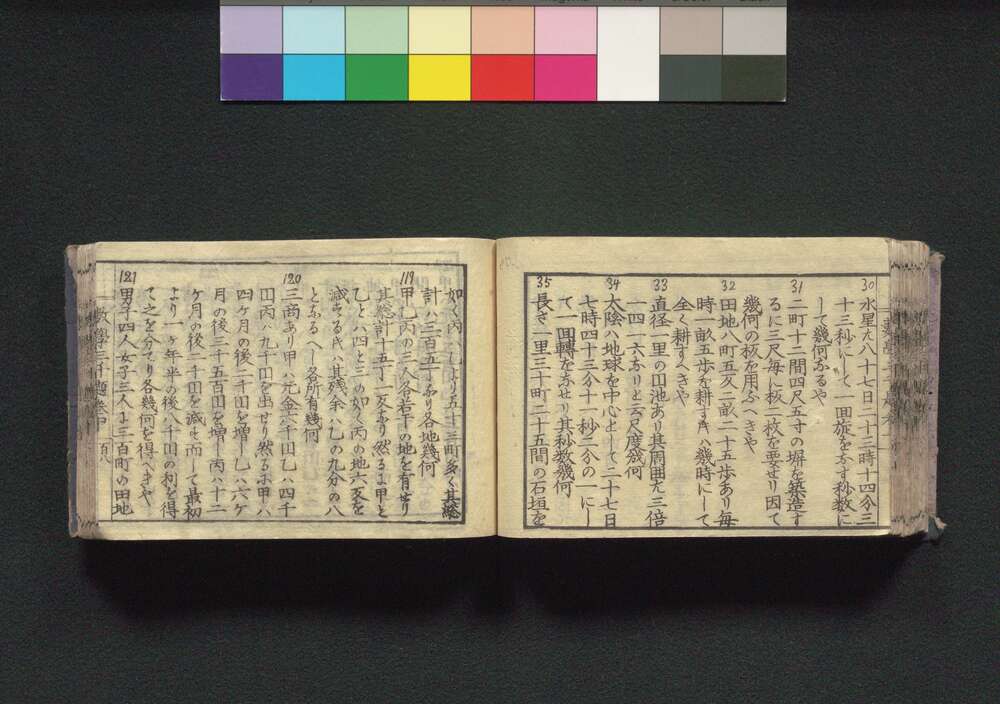 30
水星ハ八十七日二十三時十四分三
十三秒にして一回旋を為す秒数に
して幾何なるや
31
二町十二間四尺五寸の塀を築造す
るに三尺毎に板二枚を要せり因て
幾何の板を用ふへきや
32
田地八町五反二畝二十五歩あり毎
時一畝五歩を耕すきハ幾時にして
全く耕すへきや
33
直径一里の円池あり其周囲ハ三倍
一四一六なりと云尺度幾何
34
太陰ハ地球を中心として二十七日
七時四十三分十一秒二分の一にし
て一回轉をなせり其秒数幾何
35
長さ一里三十町二十五間の石垣を
如く丙ハ乙より五十三町多く其総
計ハ三百五丁なり各地幾何
119
甲乙丙の三人各若干の地を有せり
其総計十五丁一反あり然るに甲と
乙とハ四と三の如く丙の地六反を
減するきハ其残余ハ乙の九分の八
となるへし各所有幾何
120
三商あり甲ハ元金六千円乙ハ四千
円丙ハ九千円を出せり然るに甲ハ
四ケ月の後二千円を増し乙ハ六ケ
月の後三千五百円を増し丙ハ十二
ケ月の後二千円を減せ而して最初
より一ケ年半の後八千円の利を得
て之を分てり各幾何を得へきや
121
男子四人女子三人に三百町の田地